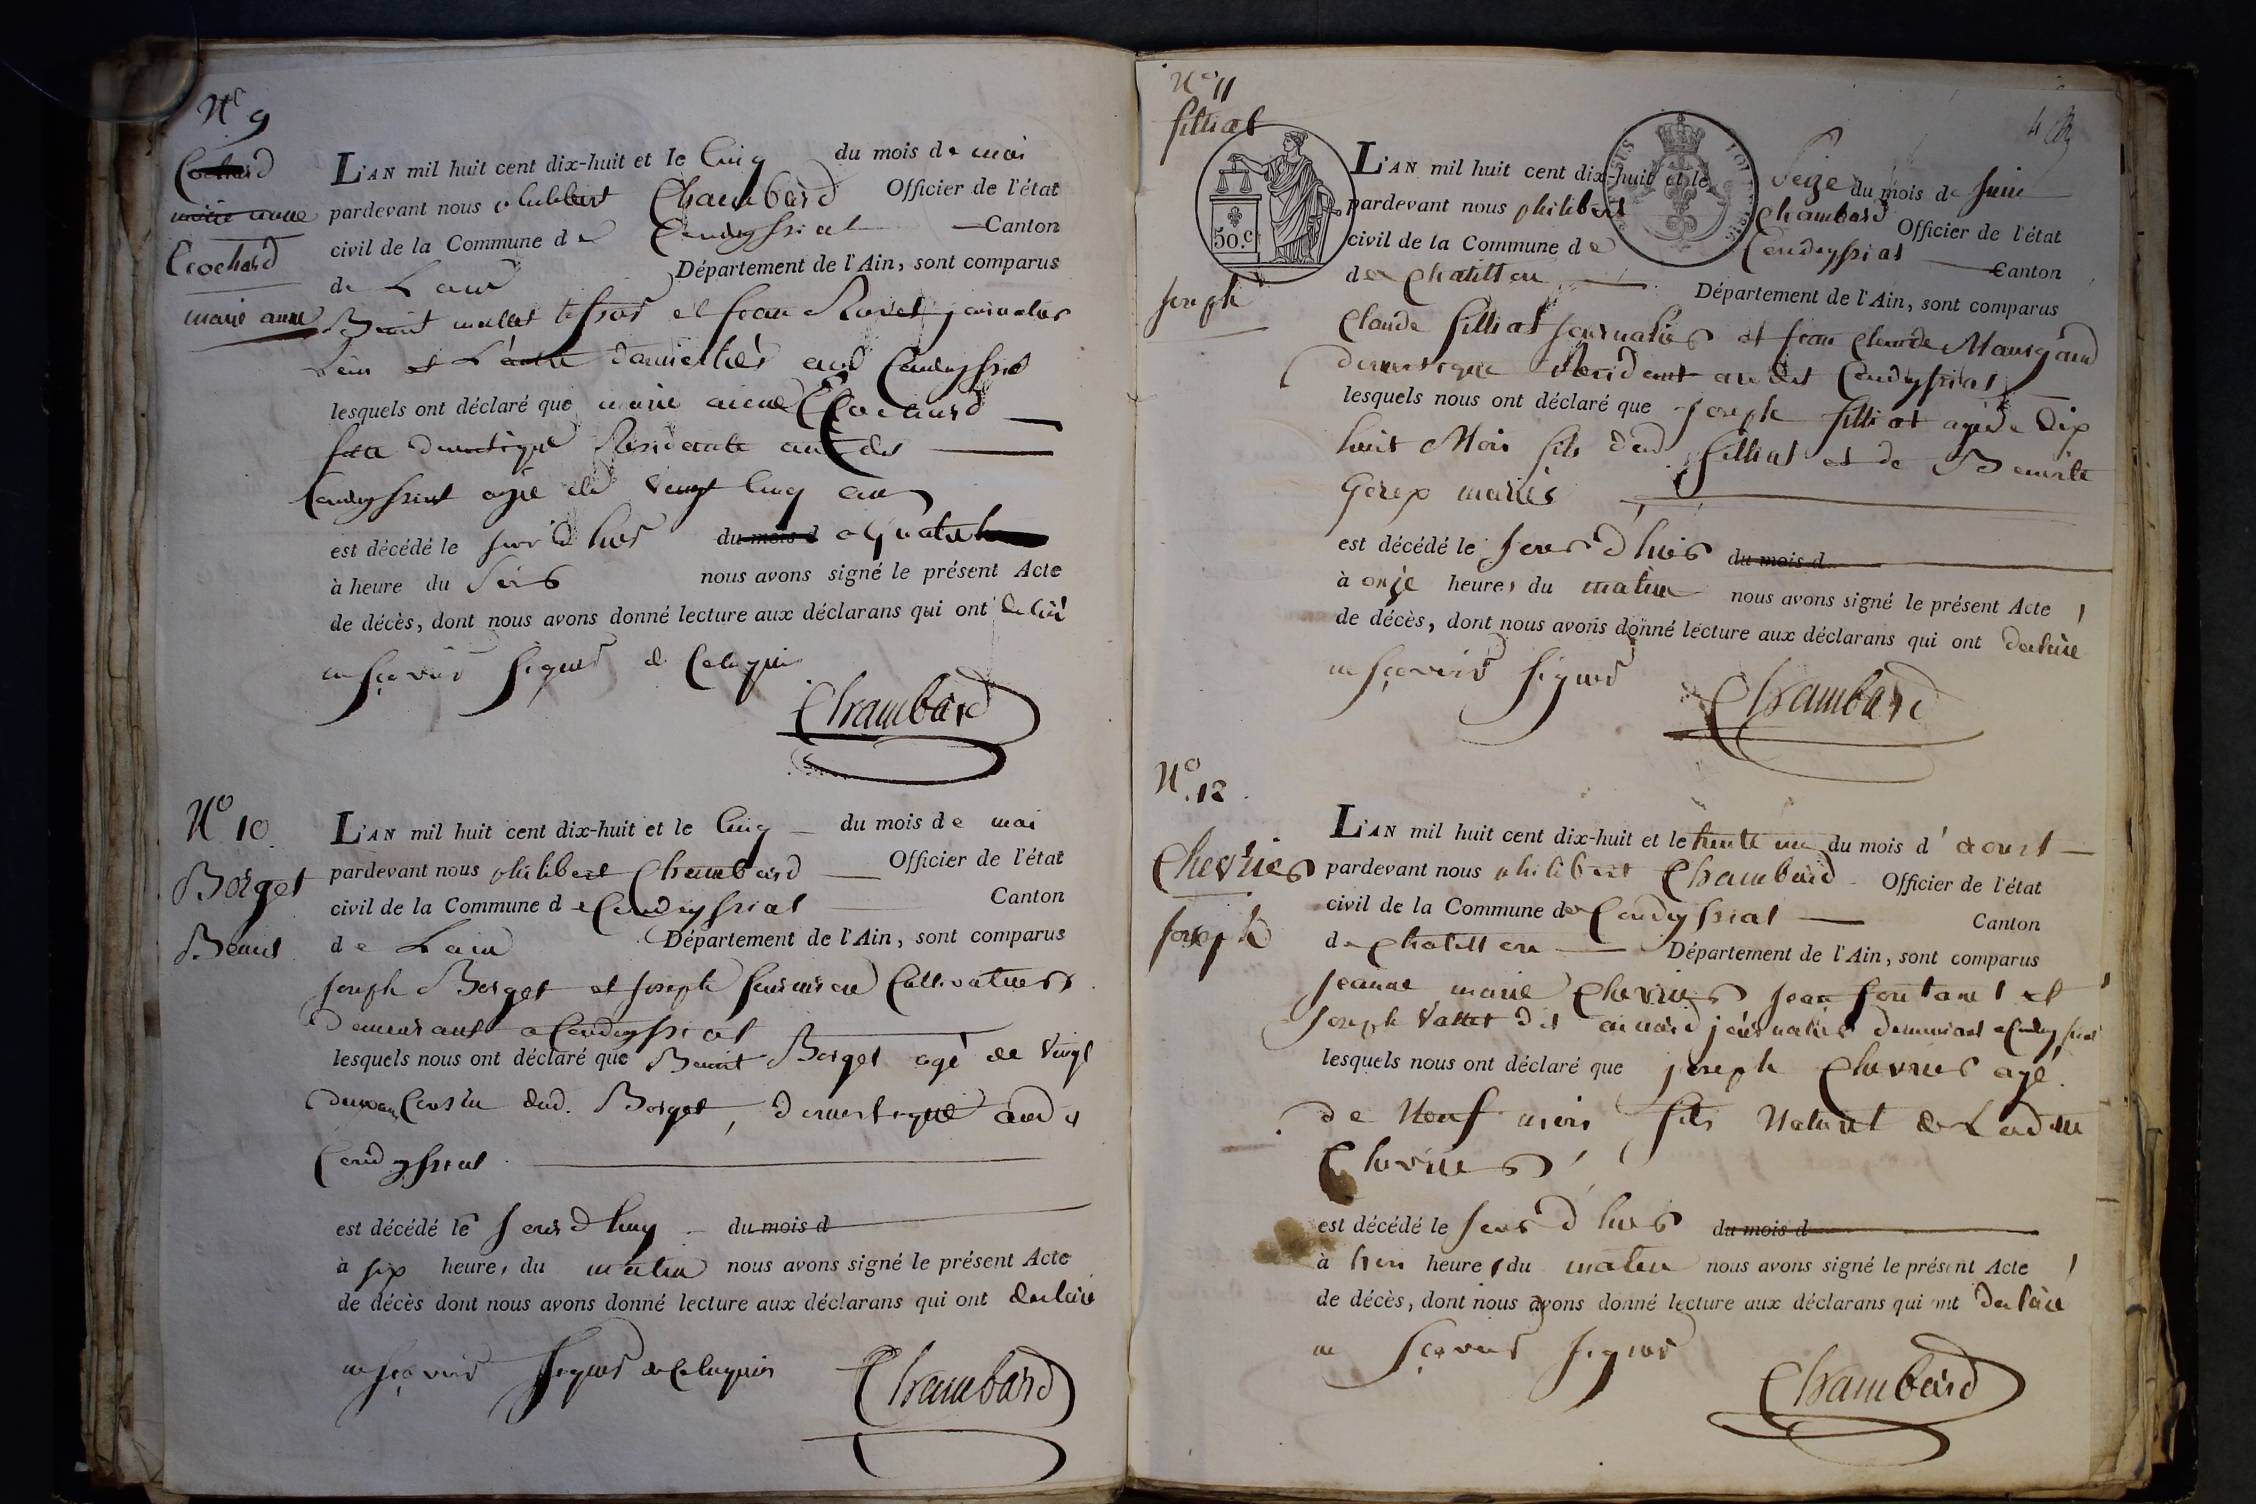 N° 9
Cochard
marie anne
Crochard
marie anne
L'AN mil huit cent dix-huit et le Cinq du mois de mai
pardevant nous philibert Chambard Officier de l'état
civil de la Commune de Condeyssiat Canton
de Lain Département de l'Ain, sont comparus
Benoit mallet tisseur et jean Revet journalier
L'un et L'autre domiciliés aud Condeyssiat
lesquels ont déclaré que marie anne Crochard
domestique Residente audit
Condeyssiat agée de vingt Cinq ans
est décédé le jour d'hier du mois d a quatre
à heure du soir nous avons signé le présent Acte
de décès, dont nous avons donné lecture aux déclarans qui ont declaré
ne sçavoir signer de Ce requis
Chambard
N° 10
Borget
Benoit
L'AN mil huit cent dix-huit et le Cinq du mois de mai
pardevant nous philibert Chambard Officier de l'état
civil de la Commune de Condeyssiat Canton
de Lain Département de l'Ain, sont comparus
joseph Borget et joseph Cultivateurs
Demeurant a Condeyssiat
lesquels nous ont déclaré que Benoit Borget agé de vingt
Cousin dud. Borget, domestique aud
Condeyssiat
est décédé le jourd'huy du mois d
à six heures du matin nous avons signé le présent Acte
de décès dont nous avons donné lecture aux déclarans qui ont declaré
ne sçavoir signer de Ce requis
Chambard
N° 11
filliat
joseph
50.c
L'AN mil huit cent dix-huit et le Seize du mois de Juin
pardevant nous philibert Chambard Officier de l'état
civil de la Commune de Condeyssiat Canton
de Chatillon Département de l'Ain, sont comparus
Claude filliat journalier et jean Claude Mangand
domestique Résidant audit Condeyssiat
lesquels nous ont déclaré que joseph filliat agé de dix
huit Mois fils dud filliat et de Benoite
Gorex mariés
est décédé le jour d'hier du mois d
à onze heures du matin nous avons signé le présent Acte
de décès, dont nous avons donné lecture aux déclarans qui ont declaré
ne sçavoir signer
Chambard
N° 12
Chevrier
joseph
L'AN mil huit cent dix-huit et le trente un du mois d'aoust
pardevant nous philibert Chambard Officier de l'état
civil de la Commune de Condeyssiat Canton
de Chatillon Département de l'Ain, sont comparus
jeanne marie Chevrier jean fontanel et
joseph Vallet dit journalier demeurant a Condeyssiat
lesquels nous ont déclaré que joseph Chevrier agé
de Neuf mois fils Naturel de Ladite
Chevrier
est décédé le jour d'hier du mois d
à trois heures du matin nous avons signé le présent Acte
de décès, dont nous avons donné lecture aux déclarans qui ont declaré
ne sçavoir signer
Chambard